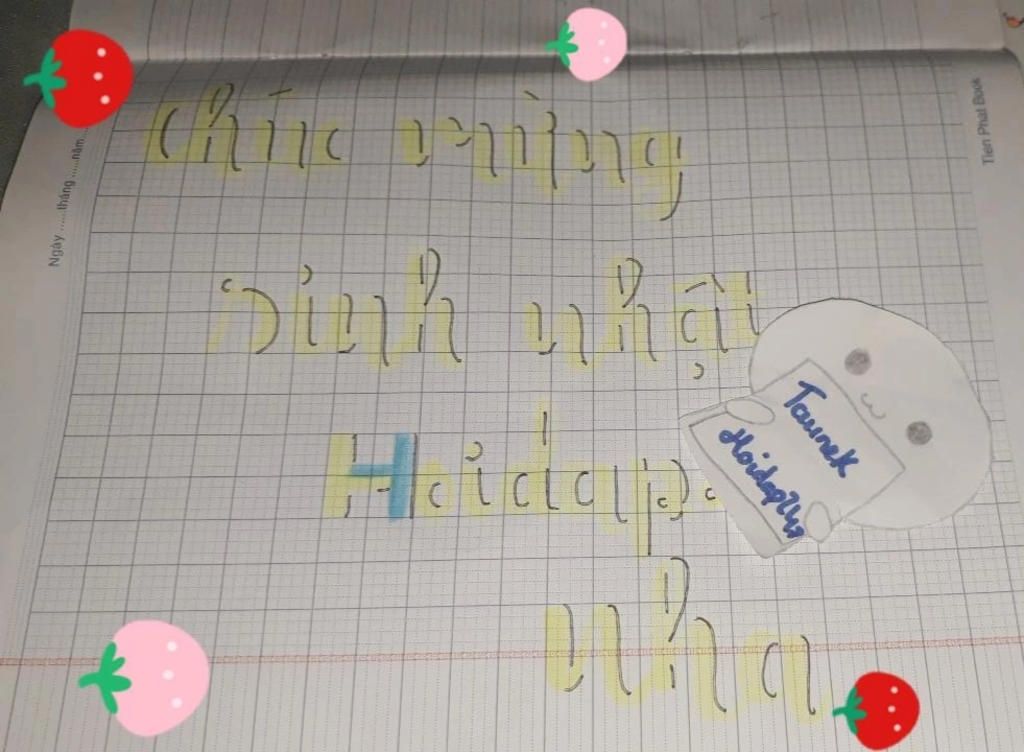 Chúc mừng
sinh nhật
Hoidap
nha
Taurnek
Hoidap247
Ngày ......tháng ......năm
Tien Phat Book